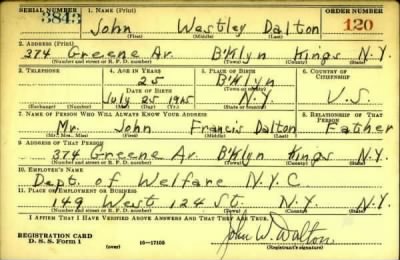 SERIAL NUMBER 1. NAME (Print) ORDER NUMBER
3843 John Westley Dalton 120
(First) (Middle) (Last)
2. ADDRESS (Print)
374 Greene Av. B'Klyn Kings N.Y.
(Number and street or R. F. D. number) (Town) (County) (State)
3. TELEPHONE 4. AGE IN YEARS 5. PLACE OF BIRTH 6. COUNTRY OF CITIZENSHIP
25 B'Klyn
DATE OF BIRTH (Town or county)
July 25 1915 N.Y. U.S.
(Exchange) (Number) (Mo.) (Day) (Yr.) (State or country)
7. NAME OF PERSON WHO WILL ALWAYS KNOW YOUR ADDRESS 8. RELATIONSHIP OF THAT PERSON
Mr. John Francis Dalton Father
(Mr., Mrs., Miss) (First) (Middle) (Last)
9. ADDRESS OF THAT PERSON
374 Greene Av. B'Klyn Kings N.Y.
(Number and street or R. F. D. number) (Town) (County) (State)
10. EMPLOYER'S NAME
Dept. of Welfare N.Y.C
11. PLACE OF EMPLOYMENT OR BUSINESS
149 West 124 St. N.Y. N.Y.
(Number and street or R. F. D. number) (Town) (County) (State)
I AFFIRM THAT I HAVE VERIFIED ABOVE ANSWERS AND THAT THEY ARE TRUE.
REGISTRATION CARD
D. S. S. Form 1 (over) 16—17105 John W. Dalton
(Registrant's signature)